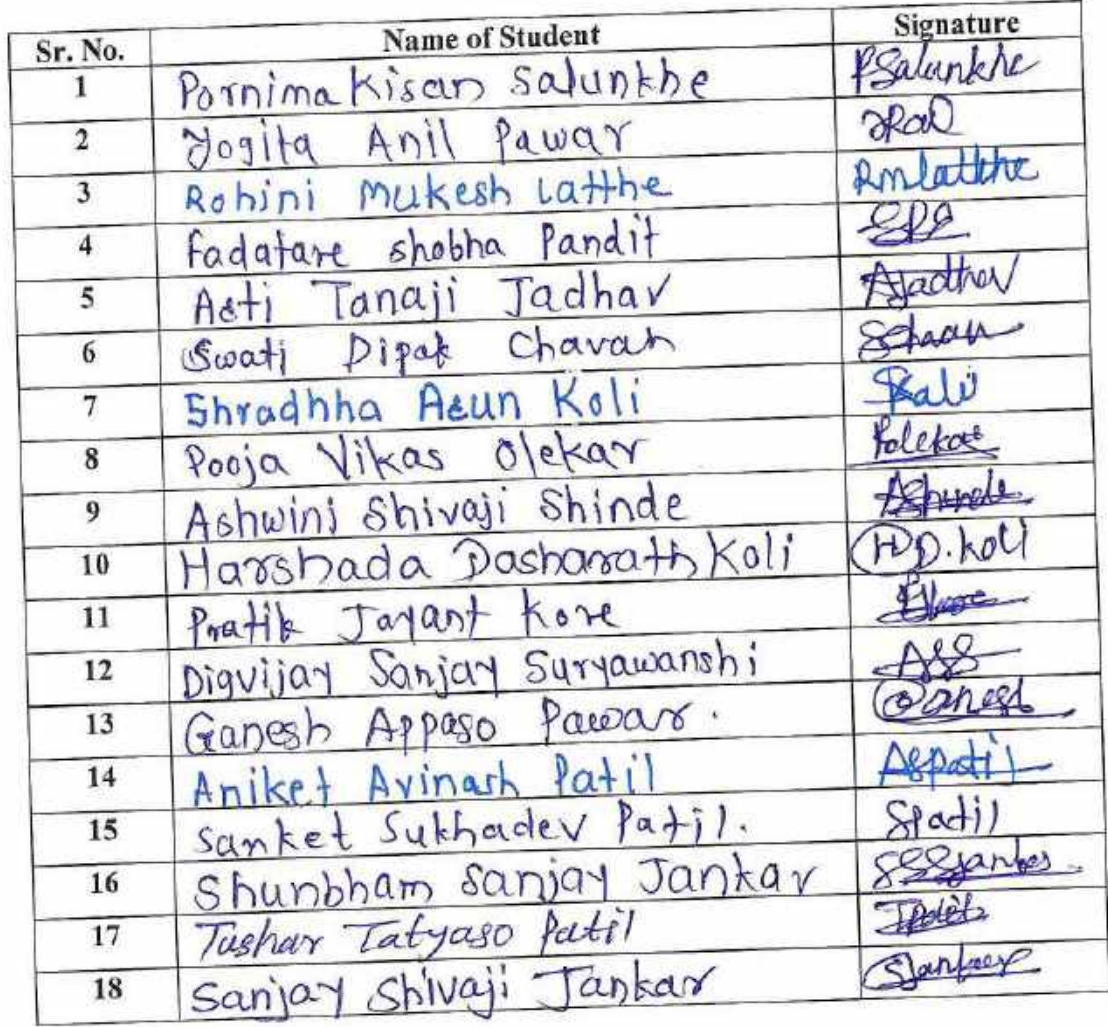 Sr. No. Name of Student Signature
1 Pornima Kisan Salunkhe PSalunkhe
2 Yogita Anil Pawar
3 Rohini Mukesh Latthe Rmlatthe
4 Fadatare shobha Pandit
5 Arti Tanaji Jadhav AJadhav
6 Swati Dipak Chavan
7 Shradhha Arun Koli Skoli
8 Pooja Vikas Olekar Polekar
9 Ashwini Shivaji Shinde AShinde
10 Harshada Dasharath Koli H.D.koli
11 Pratik Jayant Kore
12 Digvijay Sanjay Suryawanshi
13 Ganesh Appaso Pawar. Ganesh
14 Aniket Avinash Patil Aspatil
15 Sanket Sukhadev Patil. SPatil
16 Shunbham Sanjay Jankar
17 Tushar Tatyaso Patil TPatil
18 Sanjay Shivaji Jankar SJankar